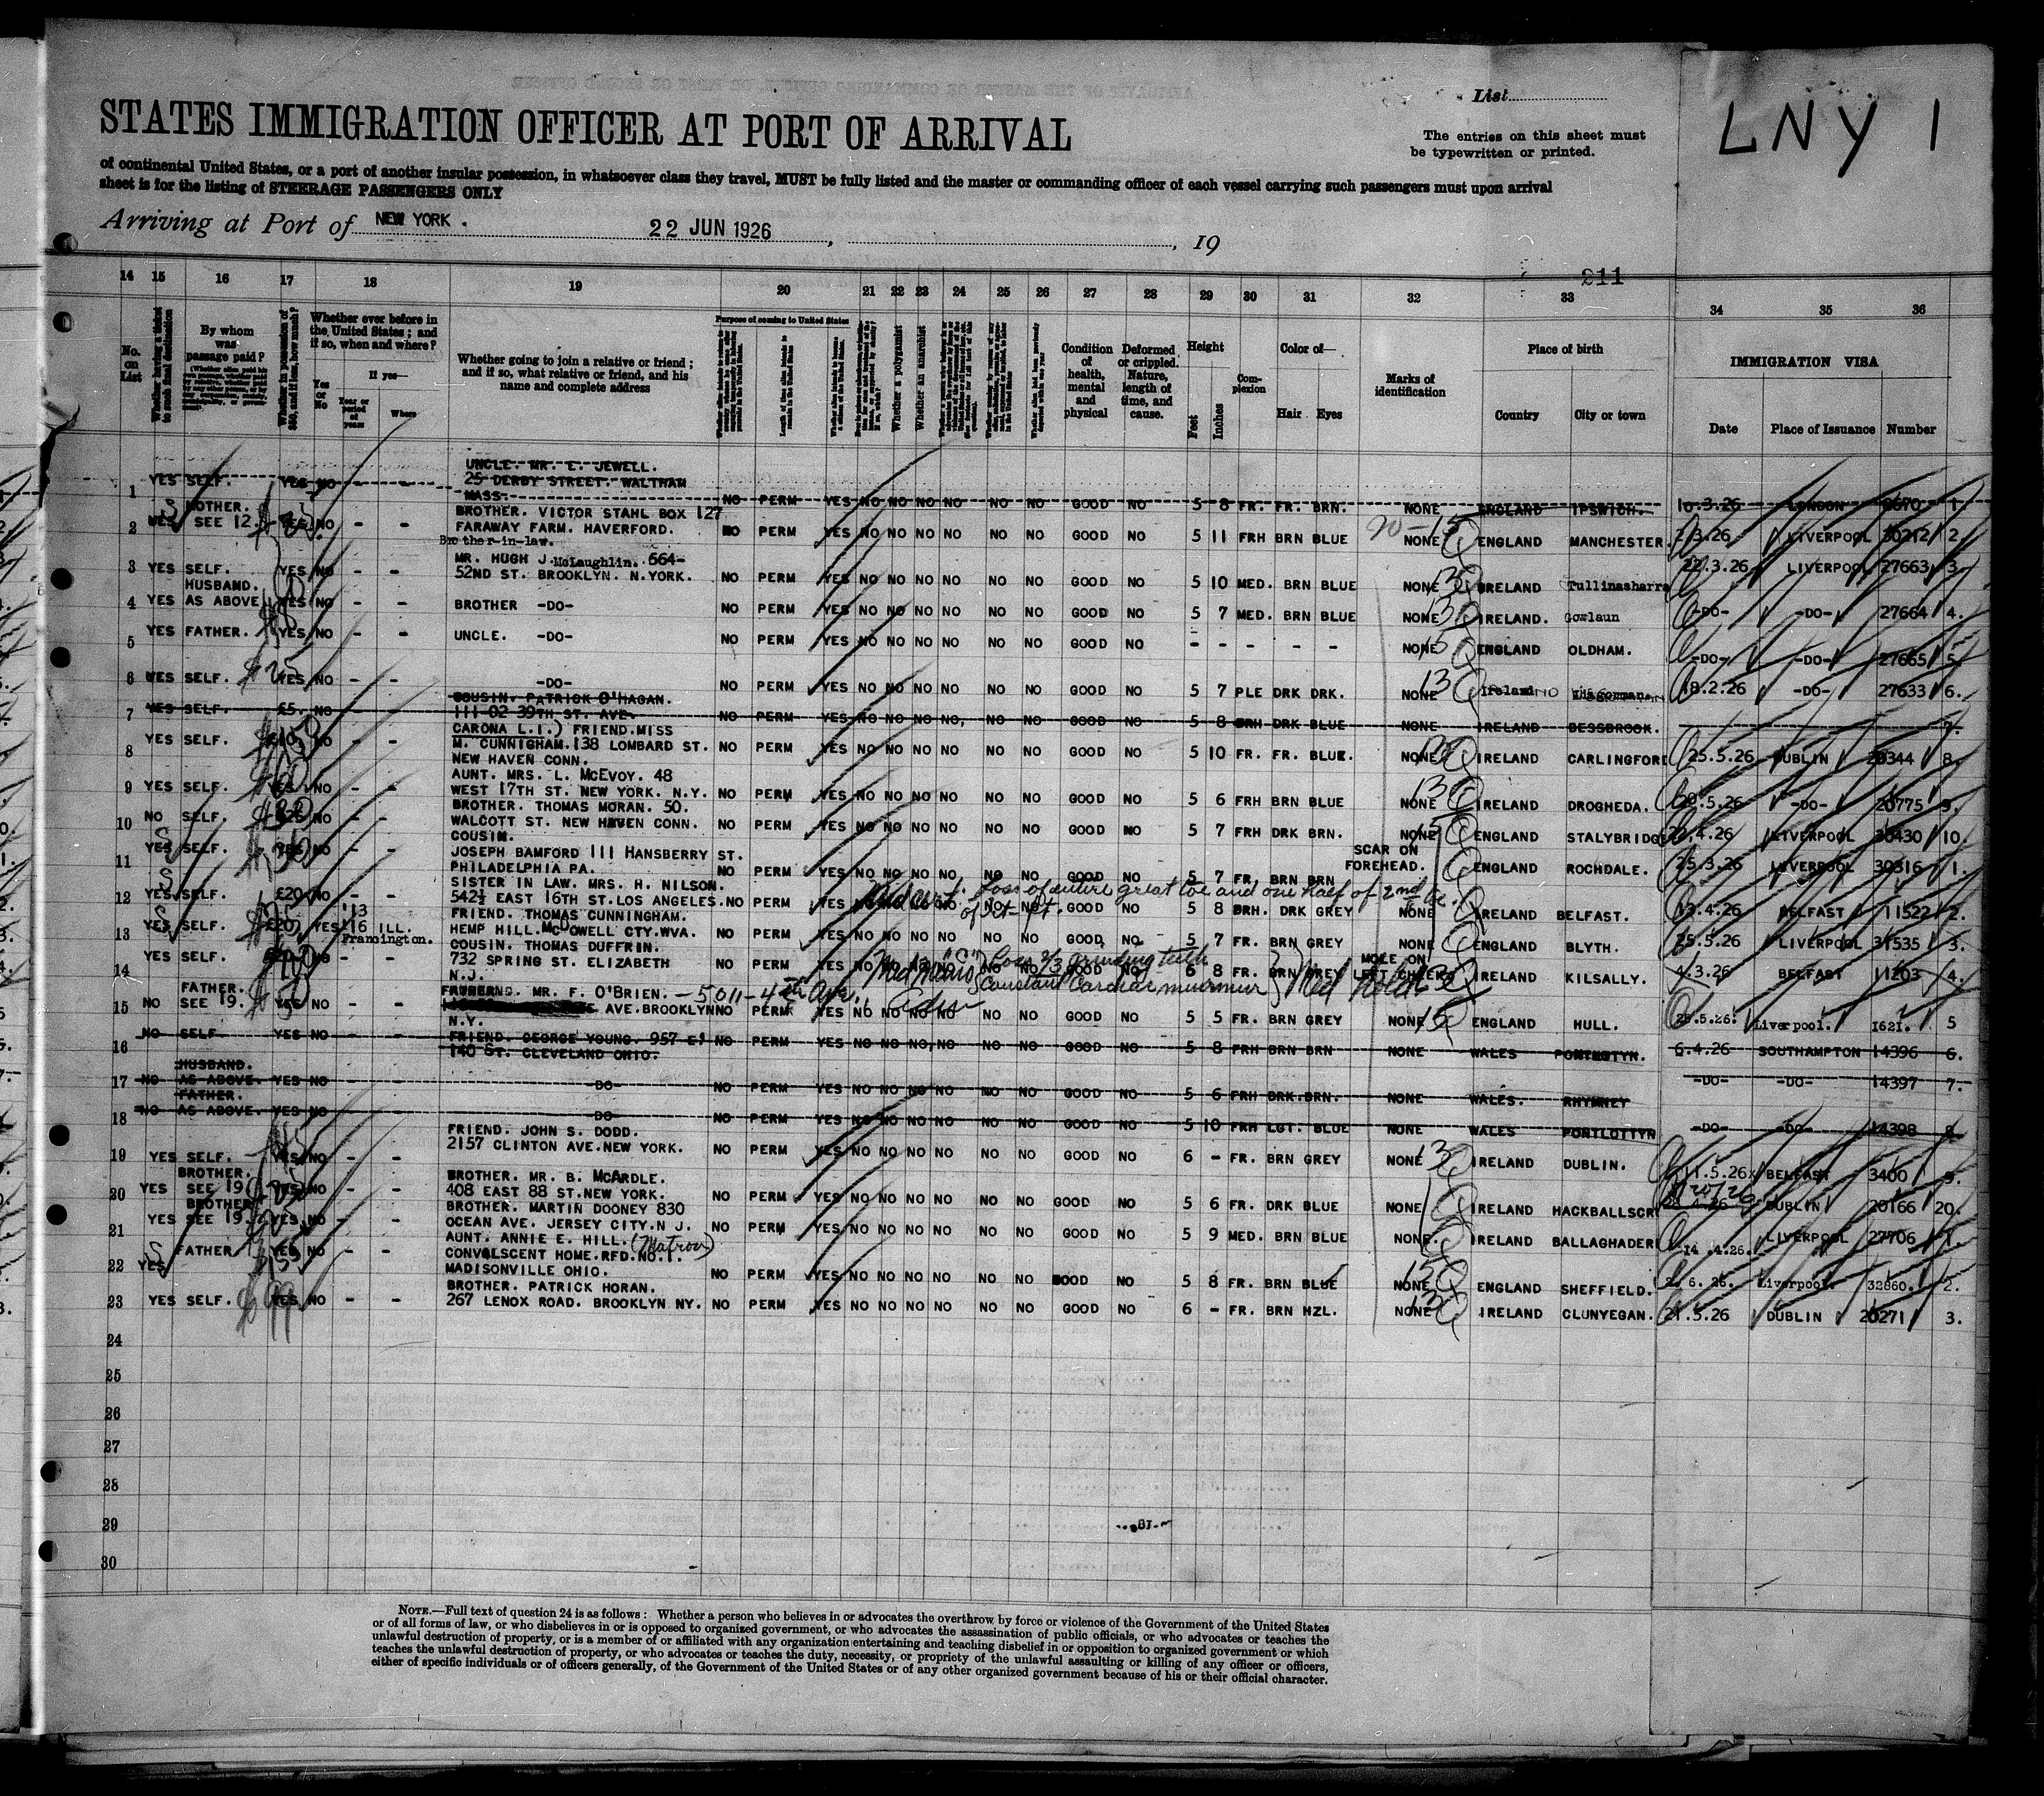 List
LNY 1
STATES IMMIGRATION OFFICER AT PORT OF ARRIVAL
The entries on this sheet must
be typewritten or printed.
of continental United States, or a port of another insular possession, in whatsoever class they travel, MUST be fully listed and the master or commanding officer of each vessel carrying such passengers must upon arrival
sheet is for the listing of STEERAGE PASSENGERS ONLY
Arriving at Port of NEW YORK. 22 JUN 1926, 19
211
14 15 16 17 18 19 20 21 22 23 24 25 26 27 28 29 30 31 32 33 34 35 36
No. on List
Whether having a ticket to such final destination
By whom was passage paid?
Whether ever before in the United States; and if so, when and where?
Yes or No
If yes—
Year or period of years
Where
Whether going to join a relative or friend; and if so, what relative or friend, and his name and complete address
Purpose of coming to United States
Whether a polygamist
Whether an anarchist
Condition of health, mental and physical
Deformed or crippled. Nature, length of time, and cause.
Height
Feet Inches
Complexion
Color of—
Hair Eyes
Marks of identification
Place of birth
Country City or town
IMMIGRATION VISA
Date Place of Issuance Number
UNCLE. MR. E. JEWELL.
25 DERBY STREET. WALTHAM
MASS.
1 YES SELF. YES NO - - NO PERM YES NO NO NO NO NO NO GOOD NO 5 8 FR. FR. BRN. NONE ENGLAND IPSWICH. 10.3.26 LONDON 8670 1.
MOTHER. BROTHER. VICTOR STAHL BOX 127
2 YES SEE 12. YES NO - - FARAWAY FARM. HAVERFORD. NO PERM YES NO NO NO NO NO NO GOOD NO 5 11 FRH BRN BLUE NONE ENGLAND MANCHESTER. 2.3.26 LIVERPOOL 30212 2.
Brother-in-law.
MR. HUGH J. McLaughlin. 664-
3 YES SELF. YES NO - - 52ND ST. BROOKLYN. N.YORK. NO PERM YES NO NO NO NO NO NO GOOD NO 5 10 MED. BRN BLUE NONE IRELAND Tullinasharra 22.3.26 LIVERPOOL 27663 3.
HUSBAND.
4 YES AS ABOVE. YES NO - - BROTHER -DO- NO PERM YES NO NO NO NO NO NO GOOD NO 5 7 MED. BRN BLUE NONE IRELAND. Gowlaun -DO- -DO- 27664 4.
5 YES FATHER. YES NO - - UNCLE. -DO- NO PERM YES NO NO NO NO NO NO GOOD NO - - - - - NONE ENGLAND OLDHAM. -DO- -DO- 27665 5.
6 YES SELF. $25 YES NO - - -DO- NO PERM YES NO NO NO NO NO NO GOOD NO 5 7 PLE DRK DRK. NONE Ireland 18.2.26 -DO- 27633 6.
COUSIN. PATRICK O'HAGAN.
7 YES SELF. £5. NO 111-02 39TH ST. AVE. NO PERM YES NO NO NO NO, NO NO GOOD NO 5 8 DRK BLUE NONE IRELAND BESSBROOK. 7.
CARONA L.I.) FRIEND.MISS
8 YES SELF. NO - - M. CUNNIGHAM.138 LOMBARD ST. NO PERM YES NO NO NO NO NO NO GOOD NO 5 10 FR. FR. BLUE. NONE IRELAND CARLINGFORD 25.5.26 DUBLIN 20344 8.
NEW HAVEN CONN.
AUNT. MRS. L. McEVOY. 48
9 YES SELF. YES NO - - WEST 17TH ST. NEW YORK. N.Y. NO PERM YES NO NO NO NO NO NO GOOD NO 5 6 FRH BRN BLUE NONE IRELAND DROGHEDA. -DO- 20775 9.
BROTHER. THOMAS MORAN. 50.
10 NO SELF. NO - - WALCOTT ST. NEW HAVEN CONN. NO PERM YES NO NO NO NO NO NO GOOD NO 5 7 FRH DRK BRN. NONE ENGLAND STALYBRIDGE 22.4.26 LIVERPOOL 30430 10.
COUSIN.
JOSEPH BAMFORD 111 HANSBERRY ST. SCAR ON
11 YES SELF. NO - - PHILADELPHIA PA. NO PERM YES NO NO NO NO NO NO GOOD NO 5 7 FR. BRN BRN FOREHEAD. ENGLAND ROCHDALE. 25.3.26 LIVERPOOL 30316 1.
SISTER IN LAW. MRS. H. NILSON. Loss of entire great toe and one half of 2nd toe.
12 YES SELF. £20 NO - - 542½ EAST 16TH ST. LOS ANGELES. NO PERM YES of rt. ft. GOOD NO 5 8 DRK GREY NONE IRELAND BELFAST. 13.4.26 BELFAST 11522 2.
'13
FRIEND. THOMAS CUNNINGHAM.
13 YES SELF. £20 YES '16 ILL. HEMP HILL. McDOWELL CTY.WVA. NO PERM YES NO NO NO NO NO NO GOOD NO 5 7 FR. BRN GREY NONE ENGLAND BLYTH. 25.5.26 LIVERPOOL 31535 3.
COUSIN. THOMAS DUFFRIN.
14 YES SELF. 732 SPRING ST. ELIZABETH NO PERM YES NO Loss 2/3 grinding teeth 6 8 FR. BRN GREY MOLE ON LEFT CHEEK IRELAND KILSALLY. 4.3.26 BELFAST 11203 4.
N.J. Constant Cardiac murmur Med Hold
FATHER. MR. F. O'BRIEN. - 5011-4th Ave.
15 NO SEE 19. YES NO - - AVE.BROOKLYN NO PERM YES NO NO NO NO NO NO GOOD NO 5 5 FR. BRN GREY NONE ENGLAND HULL. 25.5.26. Liverpool. 1621. 5
N.Y.
16 NO SELF. YES NO FRIEND. GEORGE YOUNG. 957 E. NO PERM YES NO NO NO, NO NO NO GOOD NO 5 8 FRH BRN BRN NONE WALES 6.4.26 SOUTHAMPTON 14396 6.
140 ST. CLEVELAND OHIO.
HUSBAND.
17 NO AS ABOVE. YES NO - - -DO- NO PERM YES NO NO NO NO NO NO GOOD NO 5 6 FRH DRK BRN. NONE WALES. RHYMNEY -DO- -DO- 14397 7.
FATHER.
18 NO AS ABOVE. YES NO -DO- NO PERM YES NO NO NO NO NO NO GOOD NO 5 10 FRH LGT. BLUE NONE WALES PONTLOTTYN -DO- -DO- 14398 8.
FRIEND. JOHN S. DODD.
19 YES SELF. YES NO - - 2157 CLINTON AVE.NEW YORK. NO PERM YES NO NO NO NO NO NO GOOD NO 6 - FR. BRN GREY NONE IRELAND DUBLIN. 11.5.26 BELFAST 3400 9.
BROTHER. BROTHER. MR. B. McARDLE.
20 YES SEE 19. YES NO - - 408 EAST 88 ST.NEW YORK. NO PERM YES NO NO NO NO NO NO GOOD NO 5 6 FR. DRK BLUE NONE IRELAND HACKBALLSCR 28.4.26 DUBLIN 20166 20.
BROTHER BROTHER. MARTIN DOONEY 830
21 YES SEE 19. YES NO - - OCEAN AVE. JERSEY CITY.N J. NO PERM YES NO NO NO NO NO NO GOOD NO 5 9 MED. BRN BLUE NONE. IRELAND BALLAGHADER 14.4.26. LIVERPOOL 27706 1.
AUNT. ANNIE E. HILL. (Matron)
FATHER YES NO - - CONVALSCENT HOME.RFD.NO.1.
22 YES MADISONVILLE OHIO. NO PERM YES NO NO NO NO NO NO GOOD NO 5 8 FR. BRN BLUE NONE ENGLAND SHEFFIELD. 2.6.26. Liverpool. 32860. 2.
BROTHER. PATRICK HORAN.
23 YES SELF. YES NO - - 267 LENOX ROAD. BROOKLYN NY. NO PERM YES NO NO NO NO NO NO GOOD NO 6 - FR. BRN HZL. NONE IRELAND CLUNYEGAN. 21.5.26 DUBLIN 20271 3.
24
25
26
27
28
29
30
NOTE.—Full text of question 24 is as follows: Whether a person who believes in or advocates the overthrow by force or violence of the Government of the United States
or of all forms of law, or who disbelieves in or is opposed to organized government, or who advocates the assassination of public officials, or who advocates or teaches the
unlawful destruction of property, or is a member of or affiliated with any organization entertaining and teaching disbelief in or opposition to organized government or which
teaches the unlawful destruction of property, or who advocates or teaches the duty, necessity, or propriety of the unlawful assaulting or killing of any officer or officers,
either of specific individuals or of officers generally, of the Government of the United States or of any other organized government because of his or their official character.